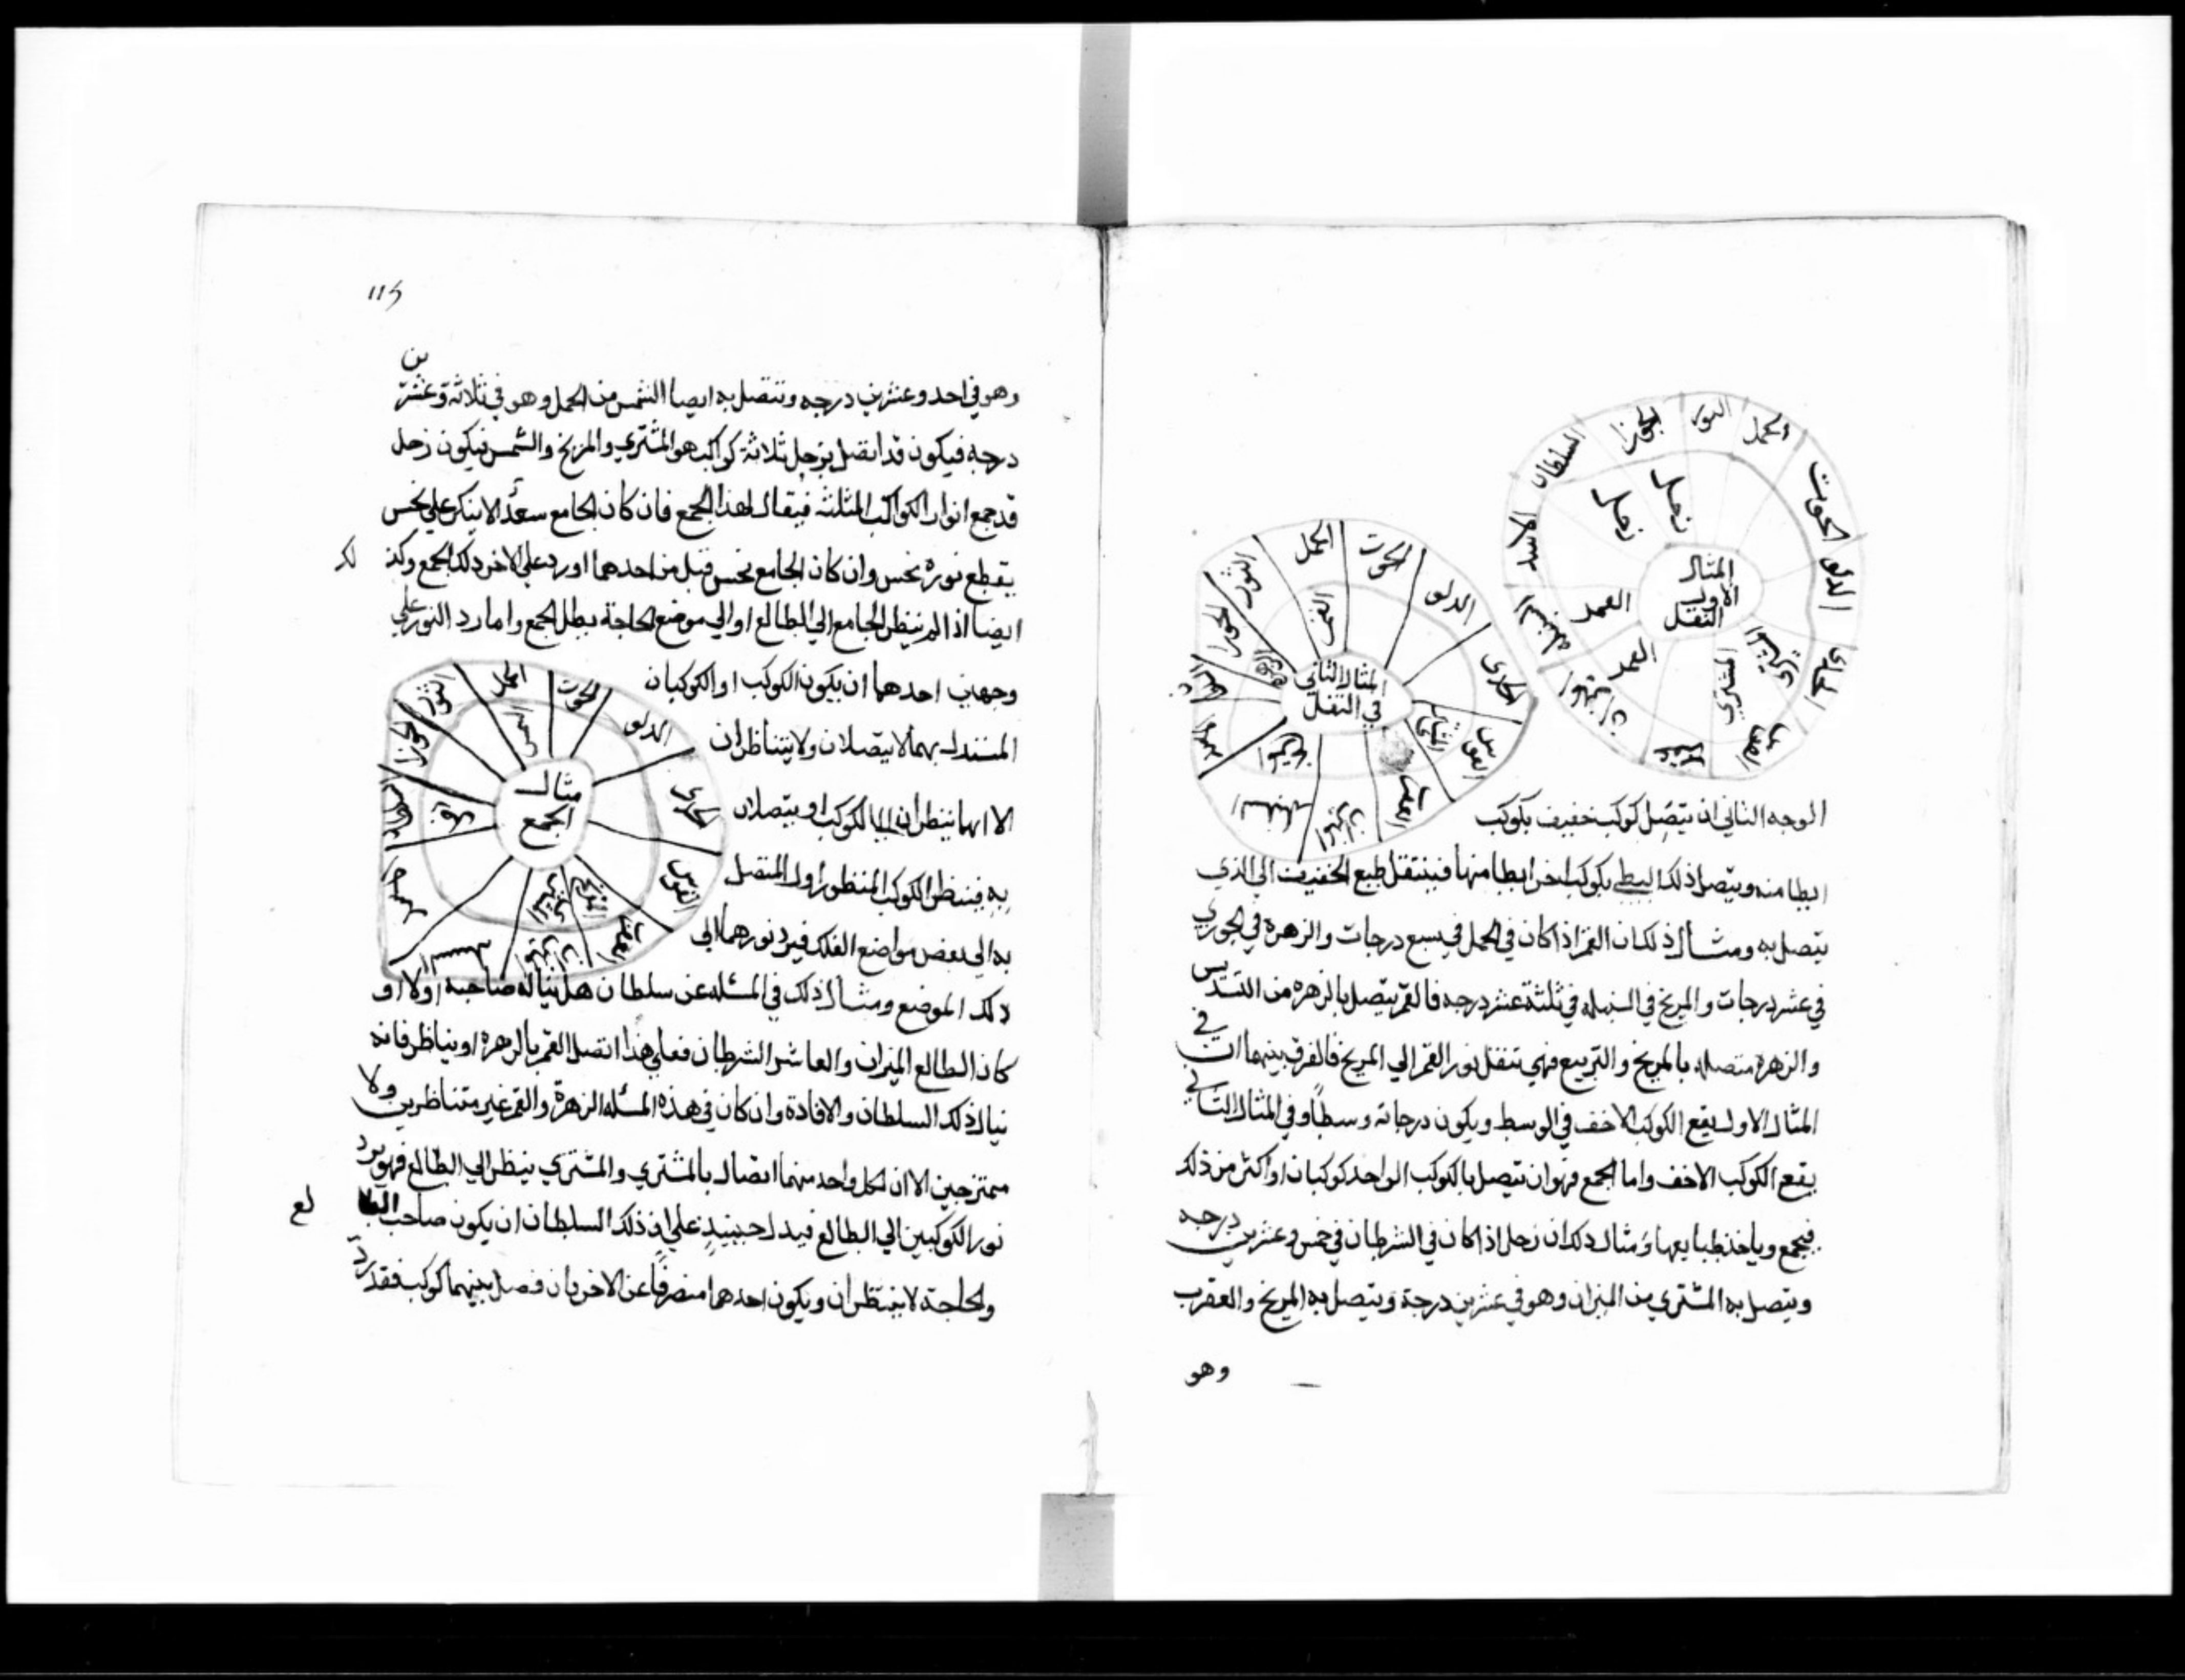 الحمل
الثور
الجوزا
السلطان
الاسد
الحوت
الدلو
الجدى
زحل
زحل
القمر
القمر
المشتري
المثال
الاول
النقل
الحمل
الحوت
الدلو
الجدى
القوس
الثور
الجوزا
القمر
الزهره
المثال الثاني
في النقل
الوجه الثاني ان يتصل كوكب خفيف بكوكب
ابطا منه ويتصل ذلك البطي بكوكب اخر ابطا منهما فينتقل طبع الخفيف الي الذي
يتصل به ومثال ذلك ان القمر اذا كان في الحمل في سبع درجات والزهره في الجوزي
في عشر درجات والمريخ في السنبله في ثلثة عشر درجه فالقمر يتصل بالزهره من التسديس
والزهره متصله بالمريخ والتربيع فهي تنقل نور القمر الي المريخ فالفرق بينهما ان في
المثال الاول يقع الكوكب الاخف في الوسط ويكون درجاته وسطاً وفي المثال الثاني
يقع الكوكب الاخف واما الجمع فهو ان تتصل بالكوكب الواحد كوكبان او اكثر من ذلك
فيجمع وياخذ طبايعها ومثال ذلك ان زحل اذا كان في الشرطان في خمس وعشرين درجه
ويتصل به المشتري من الميزان وهو في عشرين درجة ويتصل به المريخ والعقرب
وهو
115
وهو في احد وعشرين درجه وتتصل به ايضا الشمس من الحمل وهو في ثلاثة وعشرين
درجه فيكون قد اتصل بزحل ثلاثة كواكب هو المشتري والمريخ والشمس فيكون زحل
قد جمع انوار الكواكب المثلثه فيقال لهذا الجمع فان كان الجامع سعد الا ينكر علي نحس
يقطع نوره نحس وان كان الجامع نحس قبل من احدهما اورد علي الاخر ذلك الجمع وكذلك
ايضا اذا لم ينظر الجامع الي الطالع او الي موضع الحاجة بطل الجمع واما رد النور علي
وجهين احدهما ان يكون الكوكب او الكوكبان
المستدل بهما لا يتصلان ولا يتناظران
الا انهما ينظران الي الكوكب او يتصلان
به فينظر الكوكب المنظور او المتصل
به الي بعض مواضع الفلك فيرد نورهما الي
مثال
الجمع
الحمل
الحوت
الدلو
الجدى
القوس
الثور
الجوزا
ذلك الموضع ومثال ذلك في المسئله عن سلطان هل يناله صاحبه اولا او
كان الطالع الميزان والعاشر الشرطان فعلي هذا اتصل القمر بالزهره او يناظر فانه
نيال ذلك السلطان والافادة وان كان في هذه المسئله الزهرة والقمر غير متناظرين ولا
ممتزجين الا ان لكل واحد منهما اتصال بالمشتري والمشتري ينظر الي الطالع فهو يرد
نور الكوكبين الي الطالع فيدل حينيذٍ علي ان ذلك السلطان ان يكون صاحب الطالع
والحاجة لا ينتظران ويكون احدهما منصرفاً عن الاخر بان فصل بينهما كوكب فقد رد